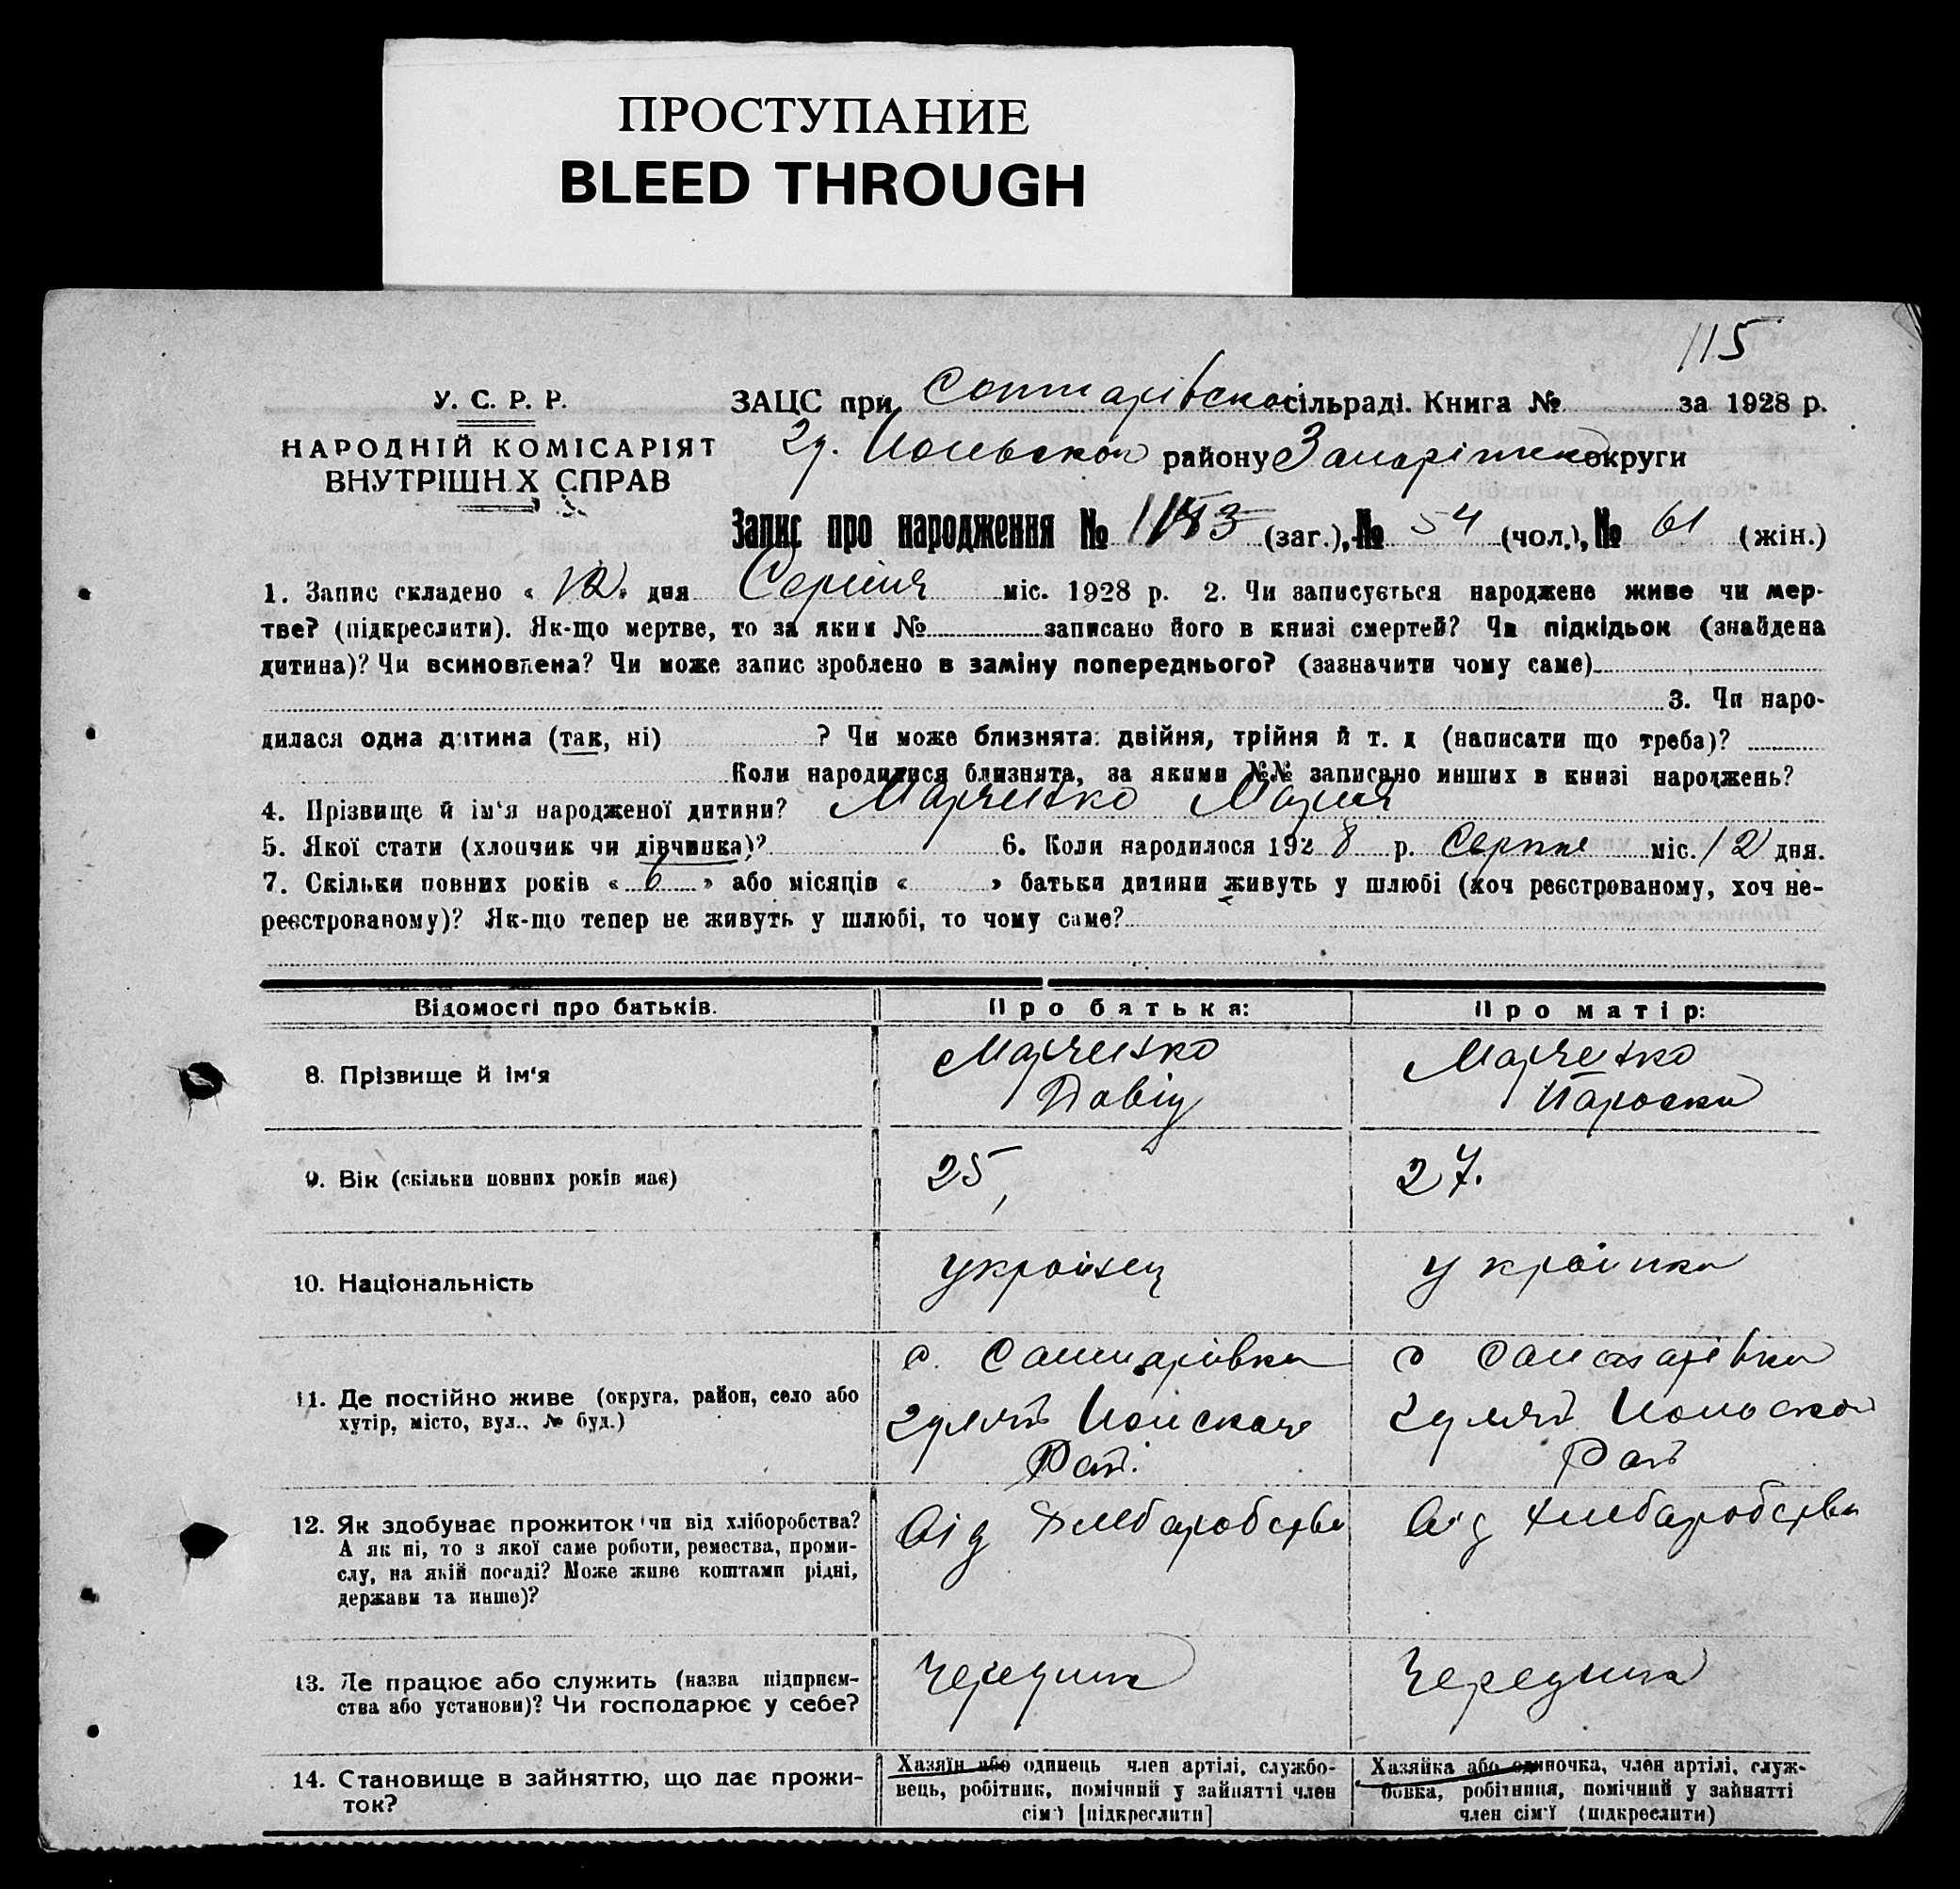 ПРОСТУПАНИЕ
BLEED THROUGH
115
У. С. Р. Р.
НАРОДНІЙ КОМІСАРІЯТ
ВНУТРІШН Х СПРАВ
ЗАЦС при сільраді. Книга № за 1928 р.
району округи
Запис про народження № (заг.), № 54 (чол.), № 61 (жін.)
1. Запис складено « 12 » дня Серпня міс. 1928 р. 2. Чи записується народжене живе чи мер-
тве? (підкреслити). Як-що мертве, то за яким № записано його в книзі смертей? Чи підкідьок (знайдена
дитина)? Чи всиновлена? Чи може запис зроблено в заміну попереднього? (зазначити чому саме)
3. Чи наро-
дилася одна дитина (так, ні) ? Чи може близнята: двійня, трійня й т. д (написати що треба)?
Коли народилися близнята, за якими №№ записано инших в книзі народжень?
4. Прізвище й ім'я народженої дитини? Марченко Мария
5. Якої стати (хлопчик чи дівчинка)? 6. Коли народилося 1928 р. Серпне міс. 12 дня.
7. Скільки повних років « 6 » або місяців « » батьки дитини живуть у шлюбі (хоч реєстрованому, хоч не-
реєстрованому)? Як-що тепер не живуть у шлюбі, то чому саме?
Відомості про батьків. Про батька: Про матір:
8. Прізвище й ім'я Марченко Давід Марченко Параска
9. Вік (скільки повних років має) 25, 27.
10. Національність українец українка
11. Де постійно живе (округа, район, село або
хутір, місто, вул., № буд.)
12. Як здобуває прожиток чи від хліборобства?
А як ні, то з якої саме роботи, ремества, проми-
слу, на якій посаді? Може живе коштами рідні,
держави та инше)?
Від Хлебаробства Від Хлебаробства
13. Де працює або служить (назва підприєм-
ства або установи)? Чи господарює у себе?
14. Становище в зайняттю, що дає прожи-
ток?
Хазяїн або одинець член артілі, службо-
вець, робітник, помічний у зайнятті член
сім'ї [підкреслити]
Хазяйка або одиночка, член артілі, служ-
бовка, робітниця, помічний у зайнятті
член сім'ї (підкреслити)